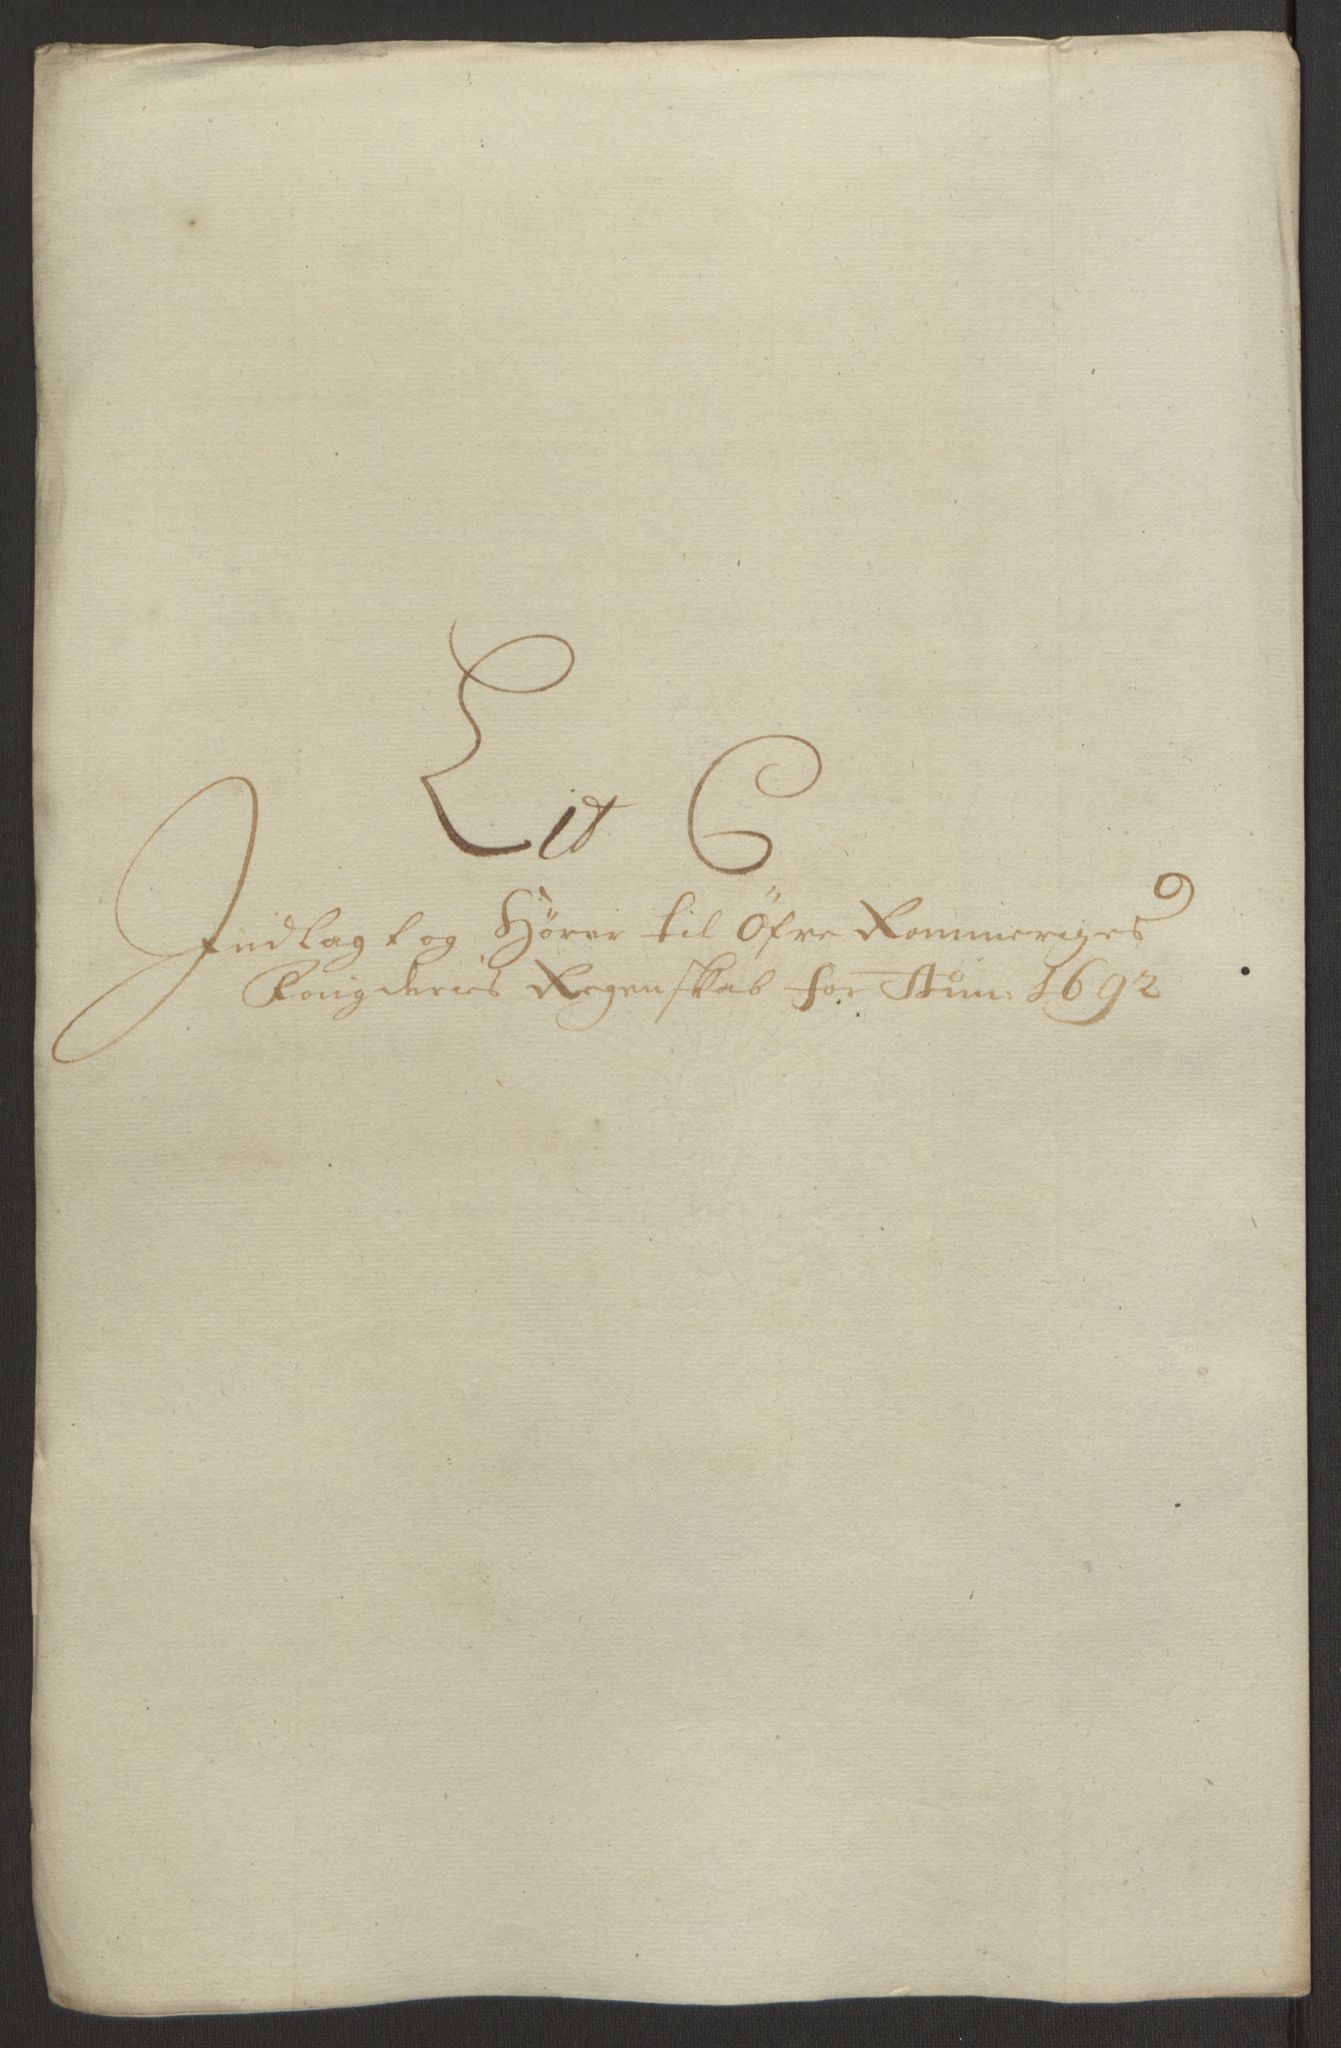 Lit C
Indlagt og Hører til Öfre Rommeriges
Fougderies Regenskab for Ao̅: 1692